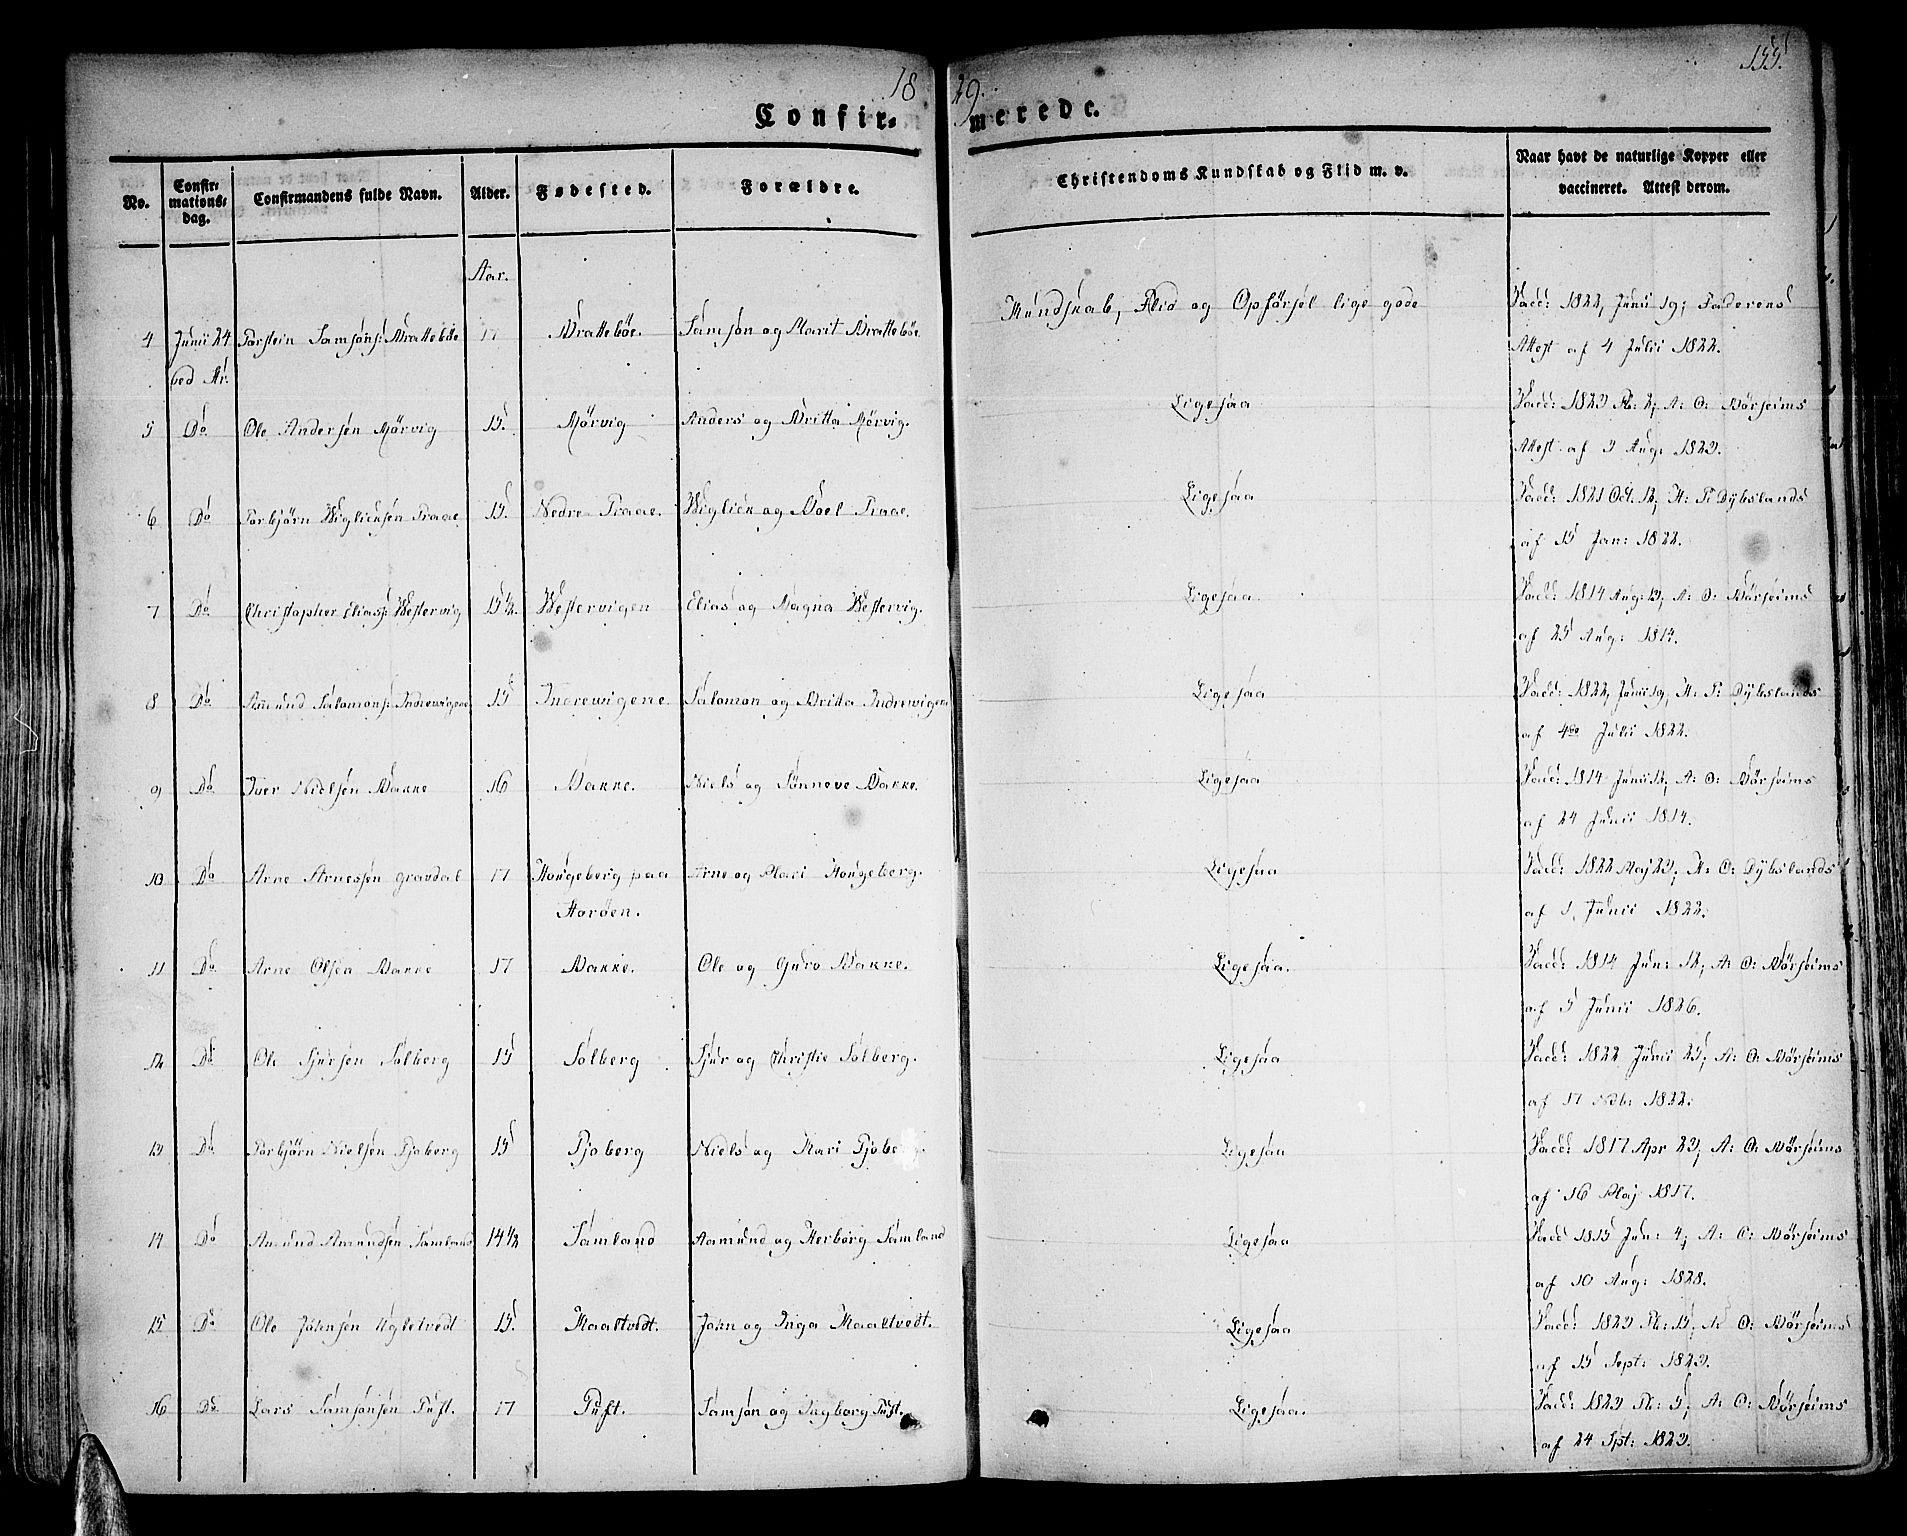 18 29. 155.
Confir- merede.
No. Confir-mations-dag. Confirmandens fulde Navn. Alder. Fødested. Forældre. Christendoms Kundskab og Flid m. v. Naar havt de naturlige Kopper eller vaccineret. Attest derom.
Aar.
4 Junii 24 Torstein Samsøns: Brattebøe 17 Brattebøe. Samson og Marit Brattebøe. Kundskab, Flid og Opførsel lige gode Vacc: 1822, Junii 19; Faderens
ved Kr. Attest af 4 Julii 1822.
5 Do Ole Andersen Mørvig 15. Mørvig Anders og Britta Mørvig. Ligesaa Vacc: 1823 A: O: Børseims
Attest af 3 Aug: 1823.
6 Do Torbjørn Wiglicksen Traae 15. Nedre Traae. Wiglick og Boel Traae. Ligesaa Vacc: 1821 Oct. 12, H: T: Dybslands
af 15 Jan: 1822.
7 Do Christopher Elias: Westervig 15½. Westervigen Elias og Magna Westervig. Ligesaa Vacc: 1814 Aug: A: O: Børseims
af 25 Aug: 1814.
8 Do Amund Salomons: Indrevigene 15 Indrevigene. Salomon og Britta Indrevigene Ligesaa Vacc: 1822, Junii 19, H: T: Dybslands
af 4de Julii 1822.
9 Do Iver Nielsen Bakke 16 Bakke. Niels og Sønneve Bakke. Ligesaa Vacc: 1814 Junii 12, A: O: Børseims
af 24 Junii 1814.
10 Do Arne Arnessøn Gravdal 17 Hougeberg paa Arne og Mari Hougeberg. Ligesaa Vacc: 1822 Maj 23, H: O: Dybslands
Herøen. af 1, Junii 1822.
11 Do Arne Olsen Bakke 17 Bakke. Ole og Guro Bakke. Ligesaa. Vacc: 1814 Jun: 12, A: O: Børseims
af 5 Junii 1826.
12 Do Ole Sjursen Solberg 15 Solberg Sjur og Christie Solberg. Ligesaa Vacc: 1822 Junii 25, A: O: Børseims
af 17 1822.
13 Do Torbjørn Nielsen Tjoberg 15 Tjoberg Niels og Kari Tjoberg. Ligesaa Vacc: 1817 Apr 23, A: O: Børseims
af 16 Maj 1817.
14 Do Amund Amundsen Samland 14½ Samland Aamund og Herborg Samland Ligesaa Vacc 1815 Jun: 4, A: O: Børseims
af 10 Aug: 1828.
15 Do Ole Johnsen 15. Maaltvedt. John og Inga Maaltvedt. Ligesaa Vacc: 1823 15, A: O: Børseims
af 15 Sept: 1823.
16 Do Lars Samsonsen Tuft. 17 Tuft. Samson og Ingborg Tuft. Ligesaa. Vacc: 1823 A: O: Børseims
af 24 Spt: 1823.